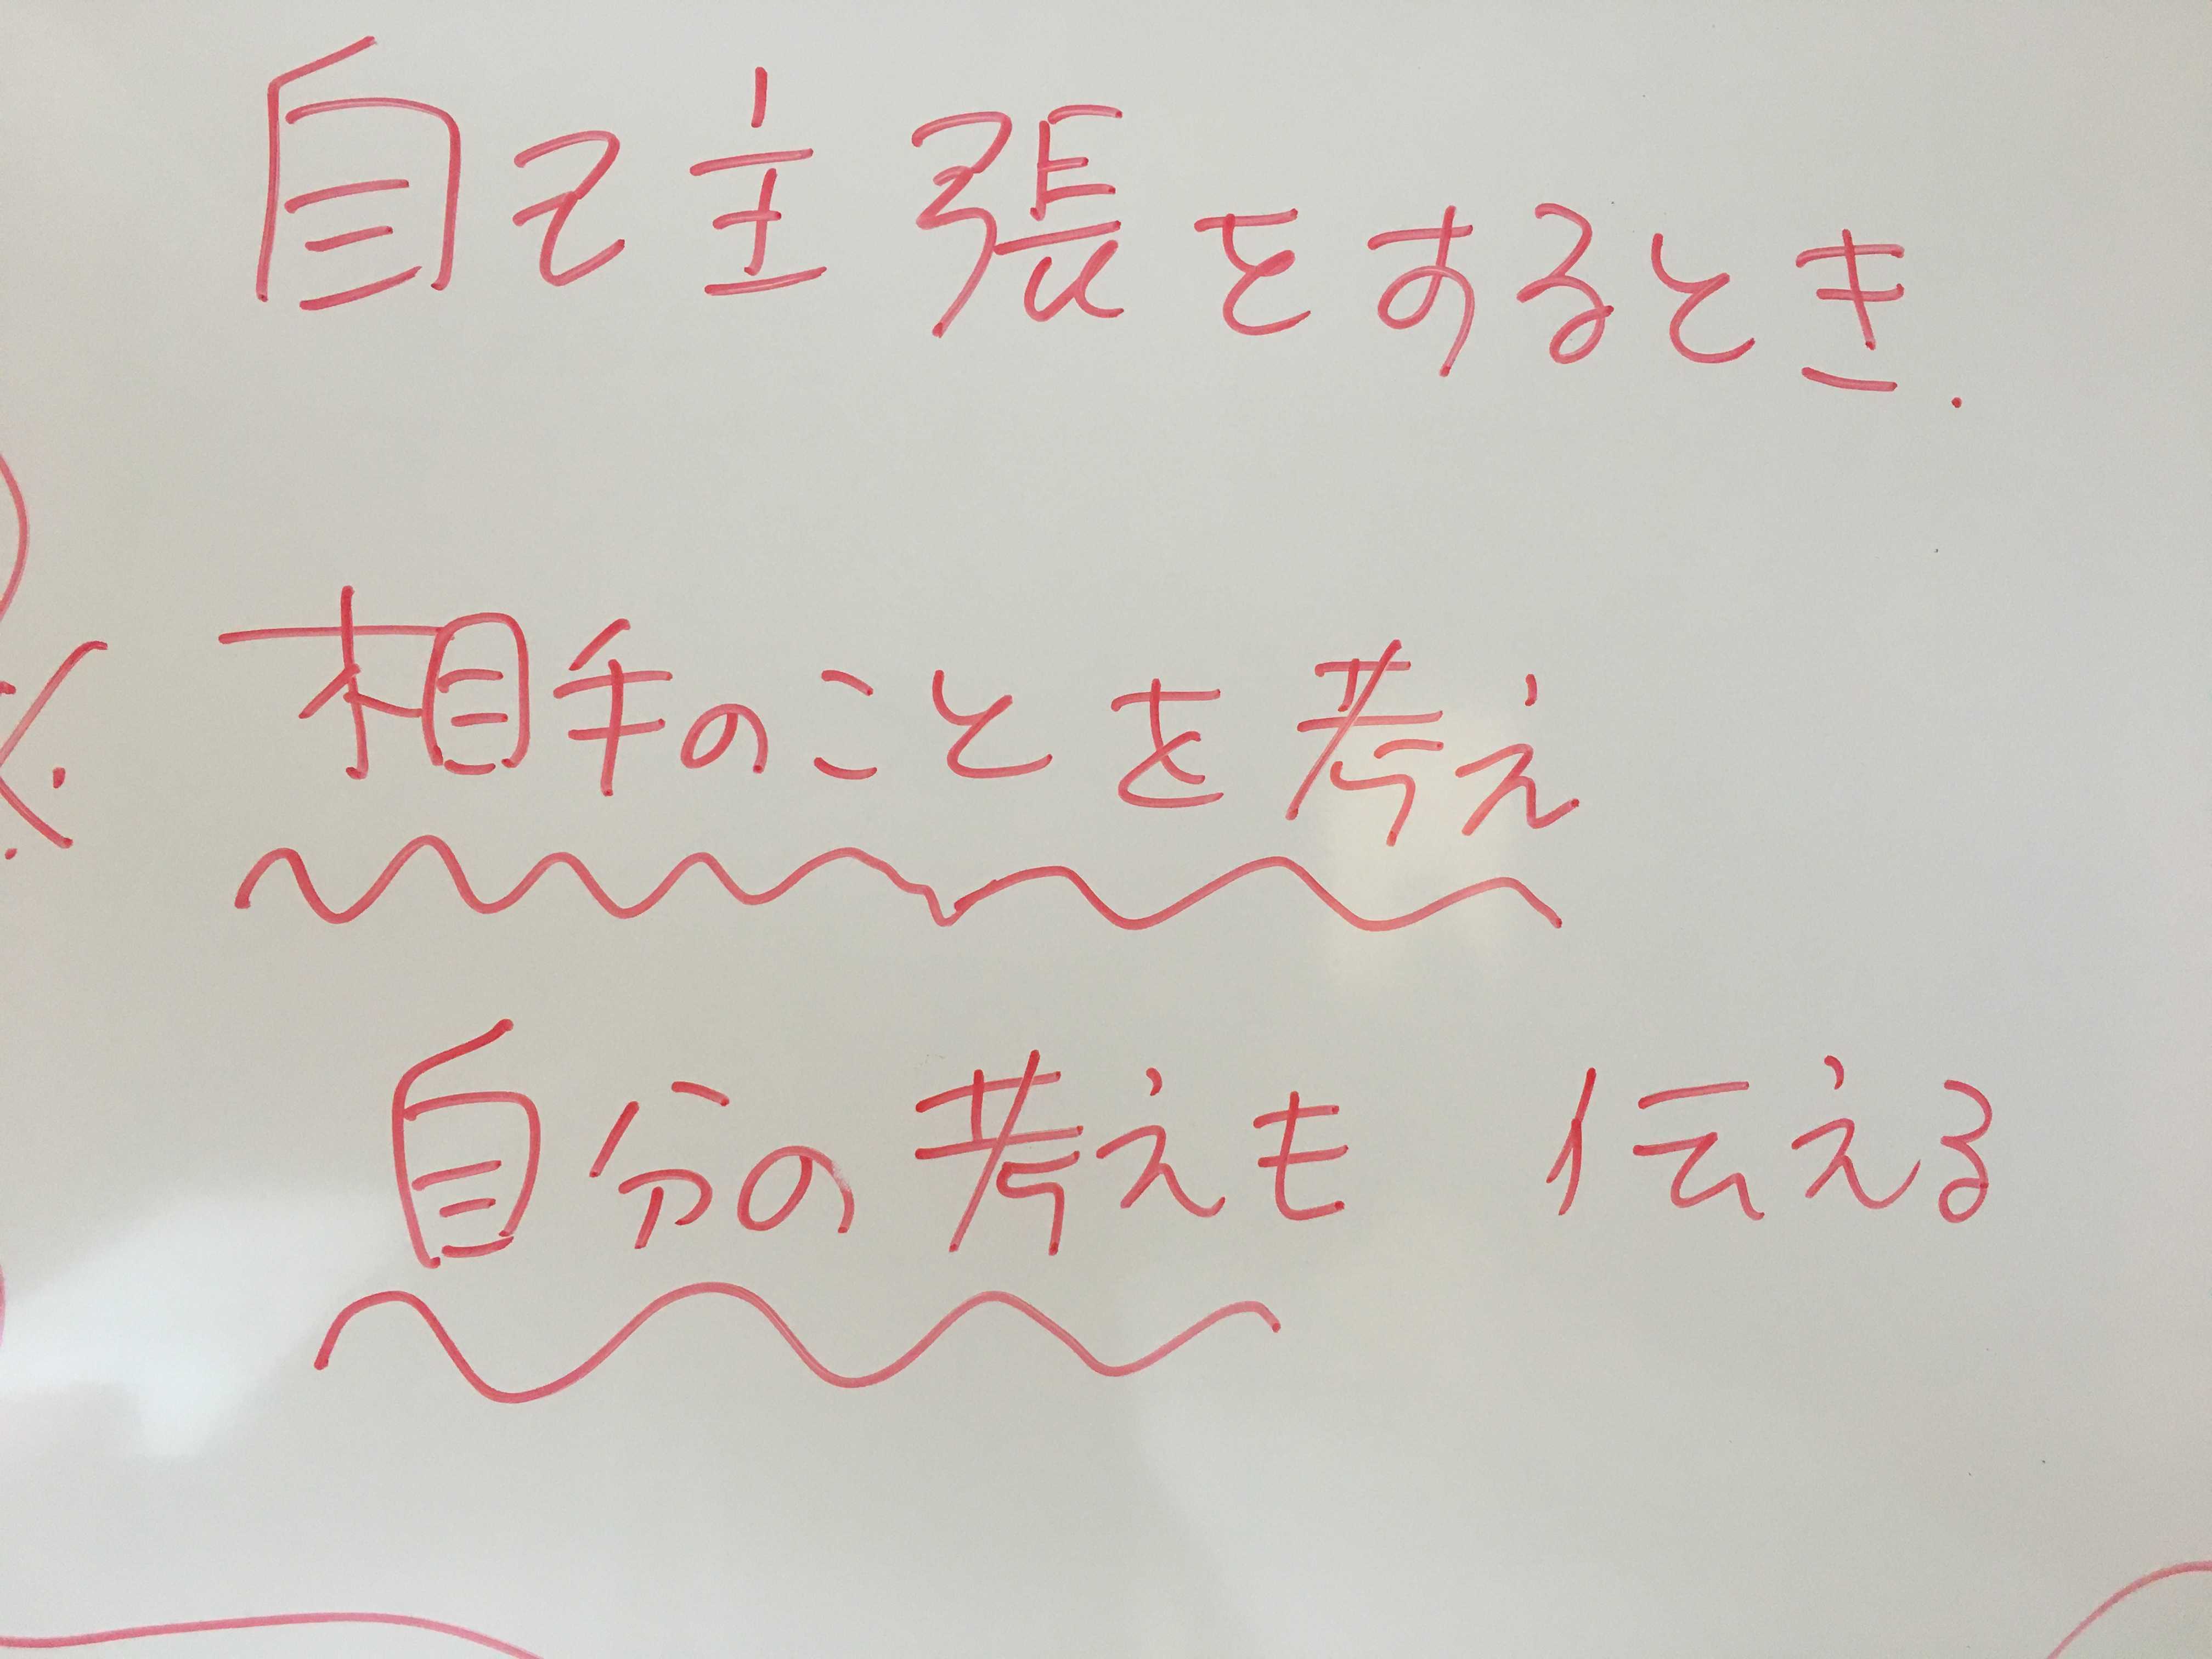 自己主張をするとき.
相手のことを考え
自分の考えも 伝える